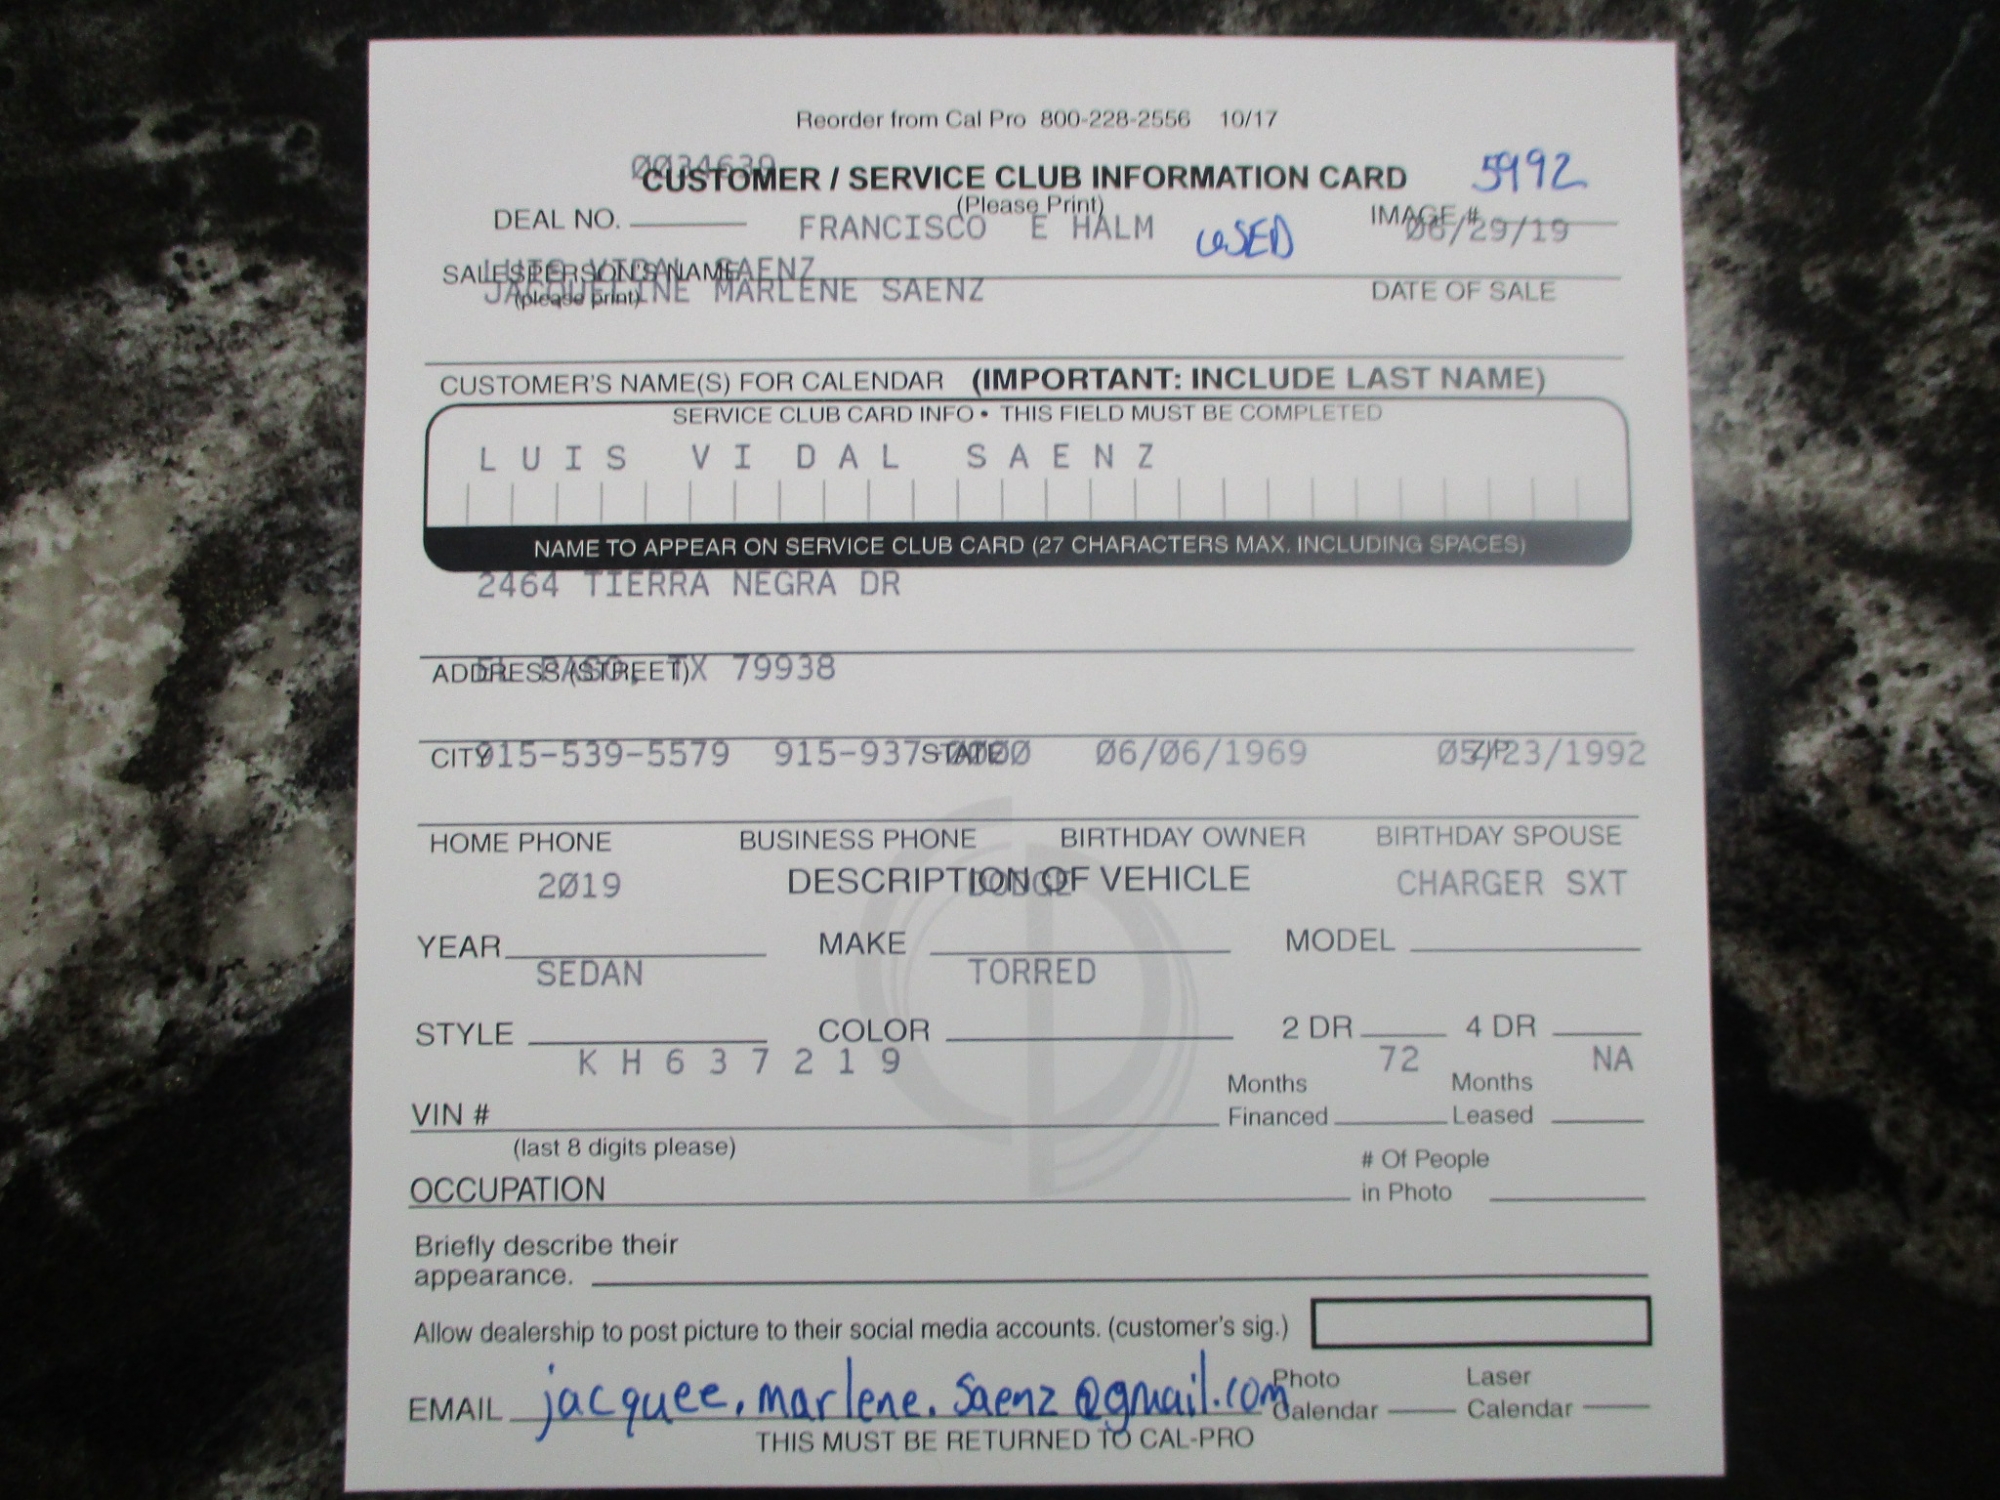 Reorder from Cal Pro 800-228-2556 10/17
0034630
CUSTOMER / SERVICE CLUB INFORMATION CARD 5992
(Please Print)
DEAL NO. FRANCISCO E HALM USED IMAGE # 06/29/19
LUIS VIDAL SAENZ
SALESPERSON'S NAME
JACQUELINE MARLENE SAENZ
(please print) DATE OF SALE
CUSTOMER'S NAME(S) FOR CALENDAR (IMPORTANT: INCLUDE LAST NAME)
SERVICE CLUB CARD INFO • THIS FIELD MUST BE COMPLETED
LUIS VIDAL SAENZ
NAME TO APPEAR ON SERVICE CLUB CARD (27 CHARACTERS MAX. INCLUDING SPACES)
2464 TIERRA NEGRA DR
EL PASO, TX 79938
ADDRESS (STREET)
915-539-5579 915-937-0000 06/06/1969 05/23/1992
CITY STATE ZIP
HOME PHONE BUSINESS PHONE BIRTHDAY OWNER BIRTHDAY SPOUSE
DESCRIPTION OF VEHICLE
2019 DODGE CHARGER SXT
YEAR MAKE MODEL
SEDAN TORRED
STYLE COLOR 2 DR 4 DR
K H 6 3 7 2 1 9 72 NA
VIN # Months Financed Months Leased
(last 8 digits please)
OCCUPATION # Of People in Photo
Briefly describe their
appearance.
Allow dealership to post picture to their social media accounts. (customer's sig.)
EMAIL jacquee.marlene.saenz@gmail.com Photo Calendar Laser Calendar
THIS MUST BE RETURNED TO CAL-PRO